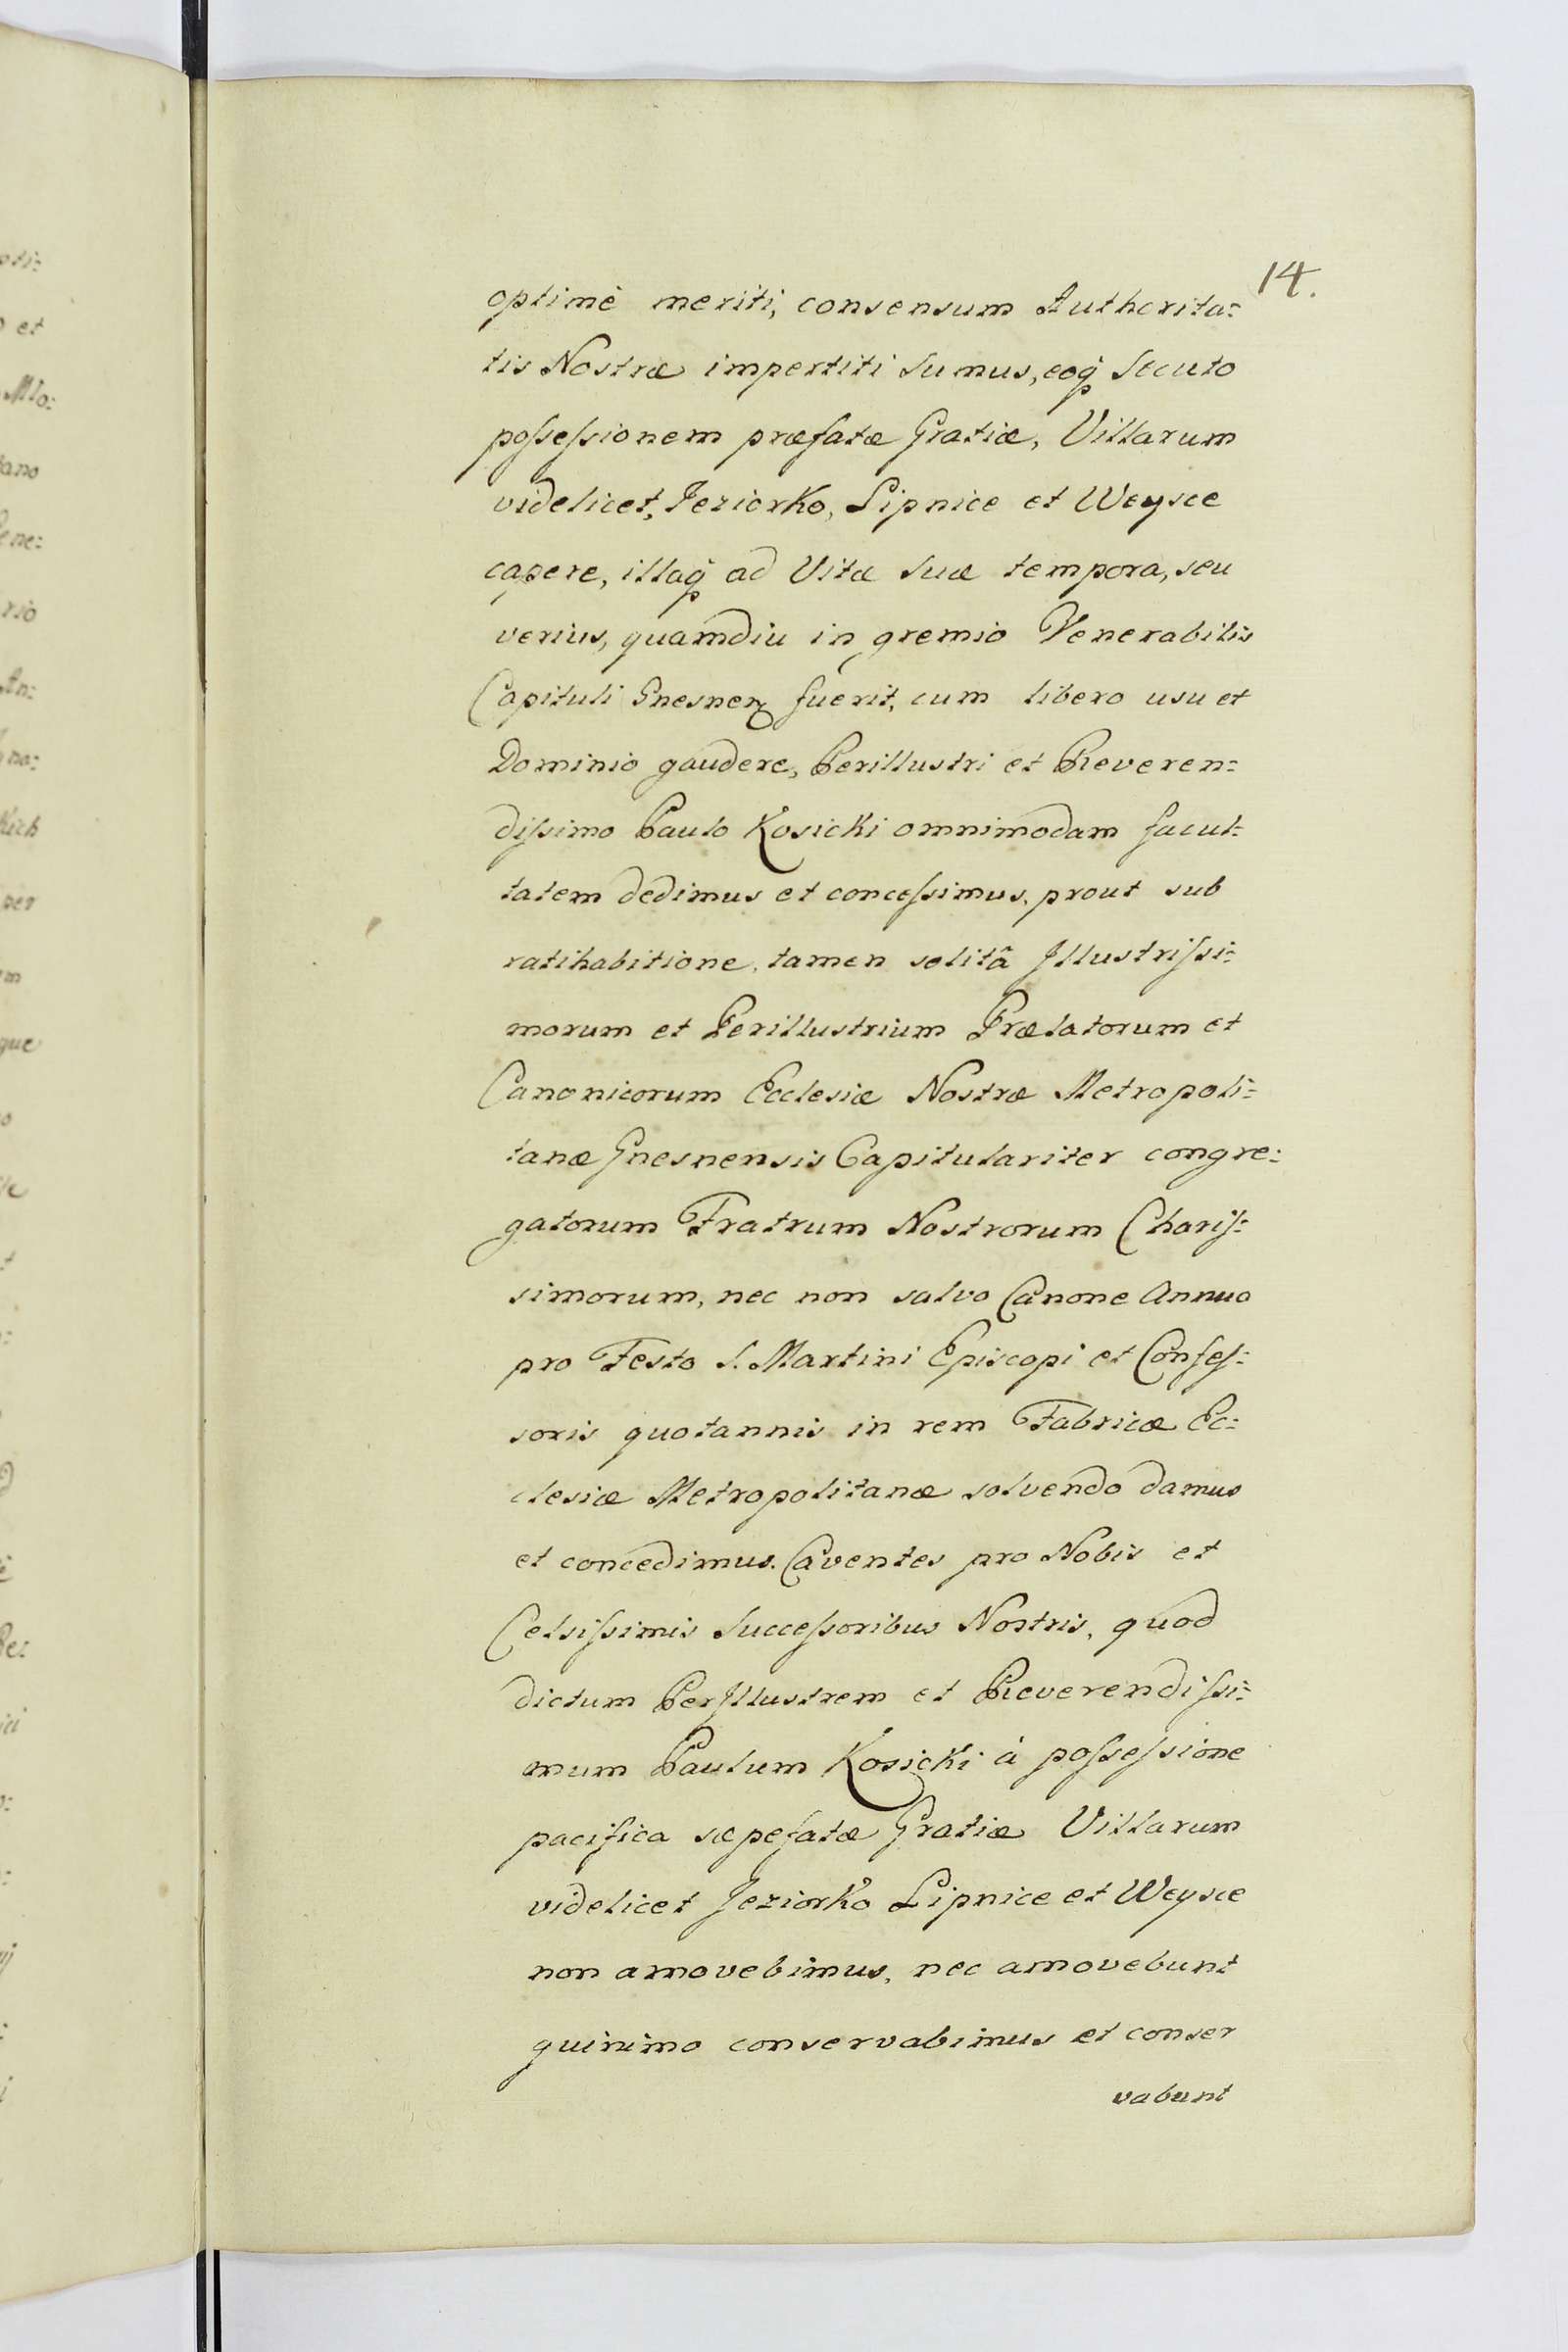 14.
optimè meriti, consensum Authorita:
tis Nostræ impertiti sumus, eoq̃ secuto
poſseſsionem præfatæ Gratiæ, Villarum
videlicet, Jeziorko, Lipnice et Weysce
capere, illaq̃ ad Vitæ suæ tempora, seu
verius, quamdiu in gremio Venerabilis
Capituli Gnesnen̄ fuerit, cum libero usu et
Dominio gaudere, Perillustri et Reveren:
diſsimo Paulo Kosicki omnimodam facul:
tatem dedimus et conceſsimus, prout sub
ratihabitione, tamen solitâ Jllustriſsi:
morum et Perillustrium Prælatorum et
Canonicorum Ecclesiæ Nostræ Metropoli:
tanæ Gnesnensis Capitulariter congre:
gatorum Fratrum Nostrorum Chariſ:
simorum, nec non salvo Canone Annuo
pro Festo S. Martini Episcopi et Confeſ:
soris quotannis in rem Fabricæ Ec:
clesiæ Metropolitanæ solvendo damus
et concedimus. Caventes pro Nobis et
Celsiſsimis Succeſsoribus Nostris, quod
dictum PerJllustrem et Reverendiſsi:
mum Paulum Kosicki à poſseſsione
pacifica sæpefatæ Gratiæ Villarum
videlicet Jeziorko Lipnice et Weysce
non amovebimus, nec amovebunt
quinimo conservabimus et conser
vabunt
oti:
et
Mlo:
ano
ene:
rio
An:
no:
kich
per
m
que